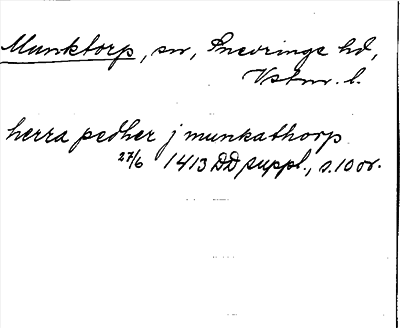 Munktorp, sn, Snevringe hd,
Vstm. l.
herra pedher j munkathorp
27/6 1413 DD suppl., s. 10 or.